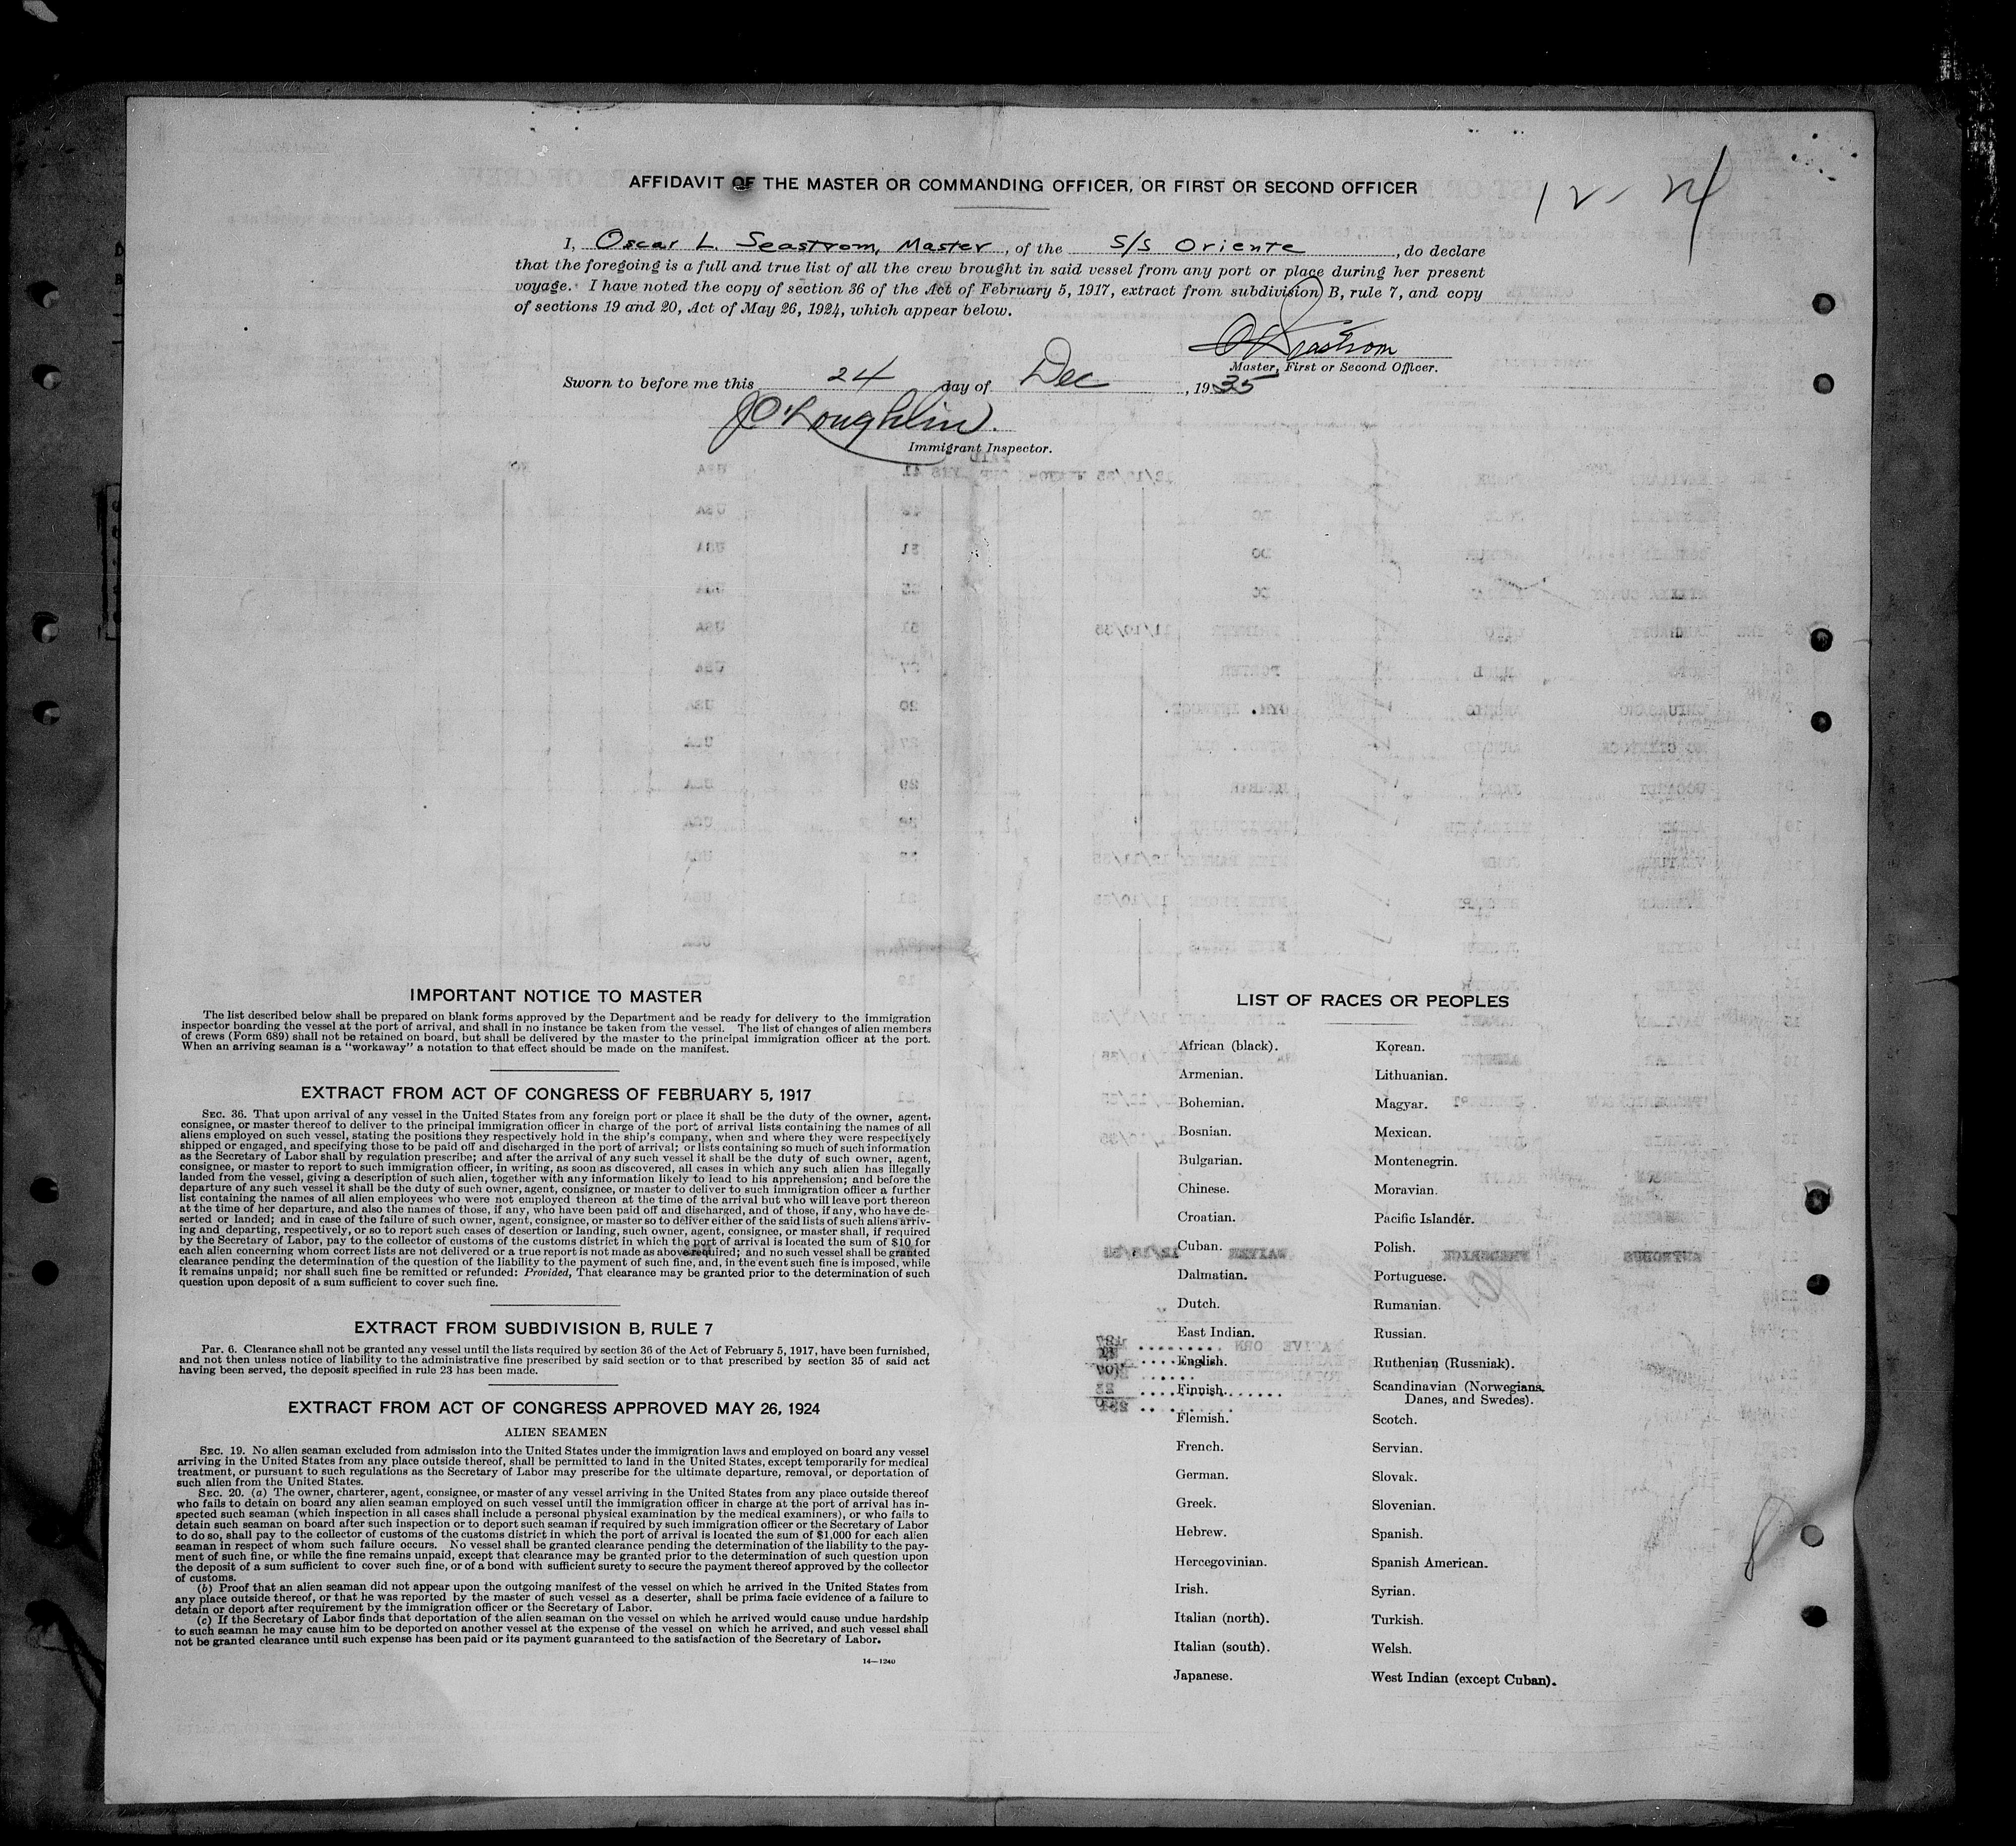 AFFIDAVIT OF THE MASTER OR COMMANDING OFFICER, OR FIRST OR SECOND OFFICER
I, Oscar L. Seastrom, Master, of the S/S Oriente, do declare
that the foregoing is a full and true list of all the crew brought in said vessel from any port or place during her present
voyage. I have noted the copy of section 36 of the Act of February 5, 1917, extract from subdivision B, rule 7, and copy
of sections 19 and 20, Act of May 26, 1924, which appear below.
Master, First or Second Officer.
Sworn to before me this 24 day of Dec, 1935
J O'Loughlin.
Immigrant Inspector.
IMPORTANT NOTICE TO MASTER
The list described below shall be prepared on blank forms approved by the Department and be ready for delivery to the immigration
inspector boarding the vessel at the port of arrival, and shall in no instance be taken from the vessel. The list of changes of alien members
of crews (Form 689) shall not be retained on board, but shall be delivered by the master to the principal immigration officer at the port.
When an arriving seaman is a "workaway" a notation to that effect should be made on the manifest.
EXTRACT FROM ACT OF CONGRESS OF FEBRUARY 5, 1917
SEC. 36. That upon arrival of any vessel in the United States from any foreign port or place it shall be the duty of the owner, agent,
consignee, or master thereof to deliver to the principal immigration officer in charge of the port of arrival lists containing the names of all
aliens employed on such vessel, stating the positions they respectively hold in the ship's company, when and where they were respectively
shipped or engaged, and specifying those to be paid off and discharged in the port of arrival; or lists containing so much of such information
as the Secretary of Labor shall by regulation prescribe; and after the arrival of any such vessel it shall be the duty of such owner, agent,
consignee, or master to report to such immigration officer, in writing, as soon as discovered, all cases in which any such alien has illegally
landed from the vessel, giving a description of such alien, together with any information likely to lead to his apprehension; and before the
departure of any such vessel it shall be the duty of such owner, agent, consignee, or master to deliver to such immigration officer a further
list containing the names of all alien employees who were not employed thereon at the time of the arrival but who will leave port thereon
at the time of her departure, and also the names of those, if any, who have been paid off and discharged, and of those, if any, who have de-
serted or landed; and in case of the failure of such owner, agent, consignee, or master so to deliver either of the said lists of such aliens arriv-
ing and departing, respectively, or so to report such cases of desertion or landing, such owner, agent, consignee, or master shall, if required
by the Secretary of Labor, pay to the collector of customs of the customs district in which the port of arrival is located the sum of $10 for
each alien concerning whom correct lists are not delivered or a true report is not made as above required; and no such vessel shall be granted
clearance pending the determination of the question of the liability to the payment of such fine, and, in the event such fine is imposed, while
it remains unpaid; nor shall such fine be remitted or refunded: Provided, That clearance may be granted prior to the determination of such
question upon deposit of a sum sufficient to cover such fine.
EXTRACT FROM SUBDIVISION B, RULE 7
Par. 6. Clearance shall not be granted any vessel until the lists required by section 36 of the Act of February 5, 1917, have been furnished,
and not then unless notice of liability to the administrative fine prescribed by said section or to that prescribed by section 35 of said act
having been served, the deposit specified in rule 23 has been made.
EXTRACT FROM ACT OF CONGRESS APPROVED MAY 26, 1924
ALIEN SEAMEN
SEC. 19. No alien seaman excluded from admission into the United States under the immigration laws and employed on board any vessel
arriving in the United States from any place outside thereof, shall be permitted to land in the United States, except temporarily for medical
treatment, or pursuant to such regulations as the Secretary of Labor may prescribe for the ultimate departure, removal, or deportation of
such alien from the United States.
SEC. 20. (a) The owner, charterer, agent, consignee, or master of any vessel arriving in the United States from any place outside thereof
who fails to detain on board any alien seaman employed on such vessel until the immigration officer in charge at the port of arrival has in-
spected such seaman (which inspection in all cases shall include a personal physical examination by the medical examiners), or who fails to
detain such seaman on board after such inspection or to deport such seaman if required by such immigration officer or the Secretary of Labor
to do so, shall pay to the collector of customs of the customs district in which the port of arrival is located the sum of $1,000 for each alien
seaman in respect of whom such failure occurs. No vessel shall be granted clearance pending the determination of the liability to the pay-
ment of such fine, or while the fine remains unpaid, except that clearance may be granted prior to the determination of such question upon
the deposit of a sum sufficient to cover such fine, or of a bond with sufficient surety to secure the payment thereof approved by the collector
of customs.
(b) Proof that an alien seaman did not appear upon the outgoing manifest of the vessel on which he arrived in the United States from
any place outside thereof, or that he was reported by the master of such vessel as a deserter, shall be prima facie evidence of a failure to
detain or deport after requirement by the immigration officer or the Secretary of Labor.
(c) If the Secretary of Labor finds that deportation of the alien seaman on the vessel on which he arrived would cause undue hardship
to such seaman he may cause him to be deported on another vessel at the expense of the vessel on which he arrived, and such vessel shall
not be granted clearance until such expense has been paid or its payment guaranteed to the satisfaction of the Secretary of Labor.
14—1240
LIST OF RACES OR PEOPLES
African (black).
Armenian.
Bohemian.
Bosnian.
Bulgarian.
Chinese.
Croatian.
Cuban.
Dalmatian.
Dutch.
East Indian.
English.
Finnish.
Flemish.
French.
German.
Greek.
Hebrew.
Hercegovinian.
Irish.
Italian (north).
Italian (south).
Japanese.
Korean.
Lithuanian.
Magyar.
Mexican.
Montenegrin.
Moravian.
Pacific Islander.
Polish.
Portuguese.
Rumanian.
Russian.
Ruthenian (Russniak).
Scandinavian (Norwegians,
Danes, and Swedes).
Scotch.
Servian.
Slovak.
Slovenian.
Spanish.
Spanish American.
Syrian.
Turkish.
Welsh.
West Indian (except Cuban).